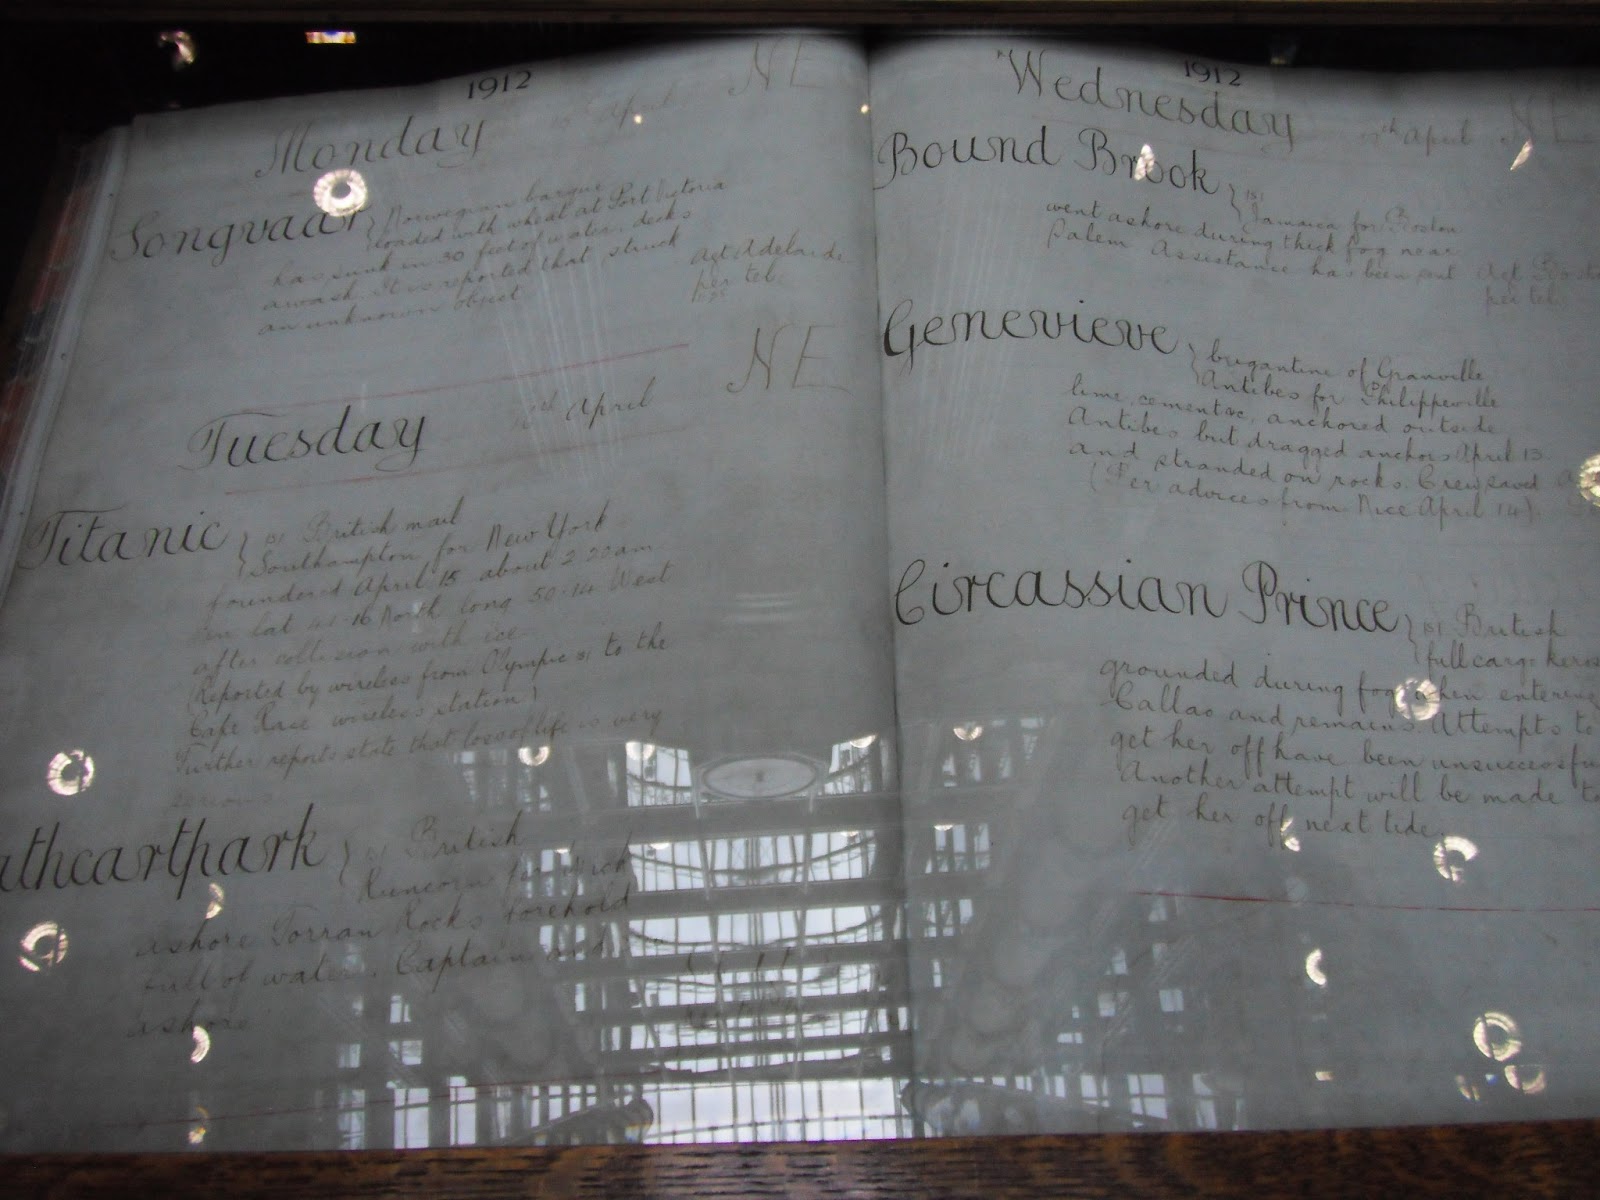 1912
Monday April NE
Songvaar } Norwegian barque
loaded with wheat at Port Victoria
has sunk in 30 feet of water, decks
awash. It is reported that struck
an unknown object
Agt Adelaide
per tel.
Tuesday April NE
Titanic } (s) British mail
Southampton for New York
foundered April 15 about 2.20am
in lat 41.16 North long 50.14 West
after collision with ice
(Reported by wireless from Olympic (s) to the
Cape Race wireless station)
Further reports state that loss of life is very
serious
athcartpark } (s) British
Runcorn for Wick
ashore Torran Rocks forehold
full of water. Captain and
ashore
1912
Wednesday 17th April NE
Bound Brook } (s)
Jamaica for Boston
went ashore during thick fog near
Salem Assistance has been sent
Agt Bosto
per tel.
Genevieve } brigantine of Granville
Antibes for Philippeville
lime, cement &c, anchored outside
Antibes but dragged anchors April 13
and stranded on rocks. Crew saved
(Per advices from Nice April 14)
Circassian Prince } (s) British
full cargo keros
grounded during fog when entering
Callao and remains. Attempts to
get her off have been unsuccessfu
Another attempt will be made to
get her off next tide.